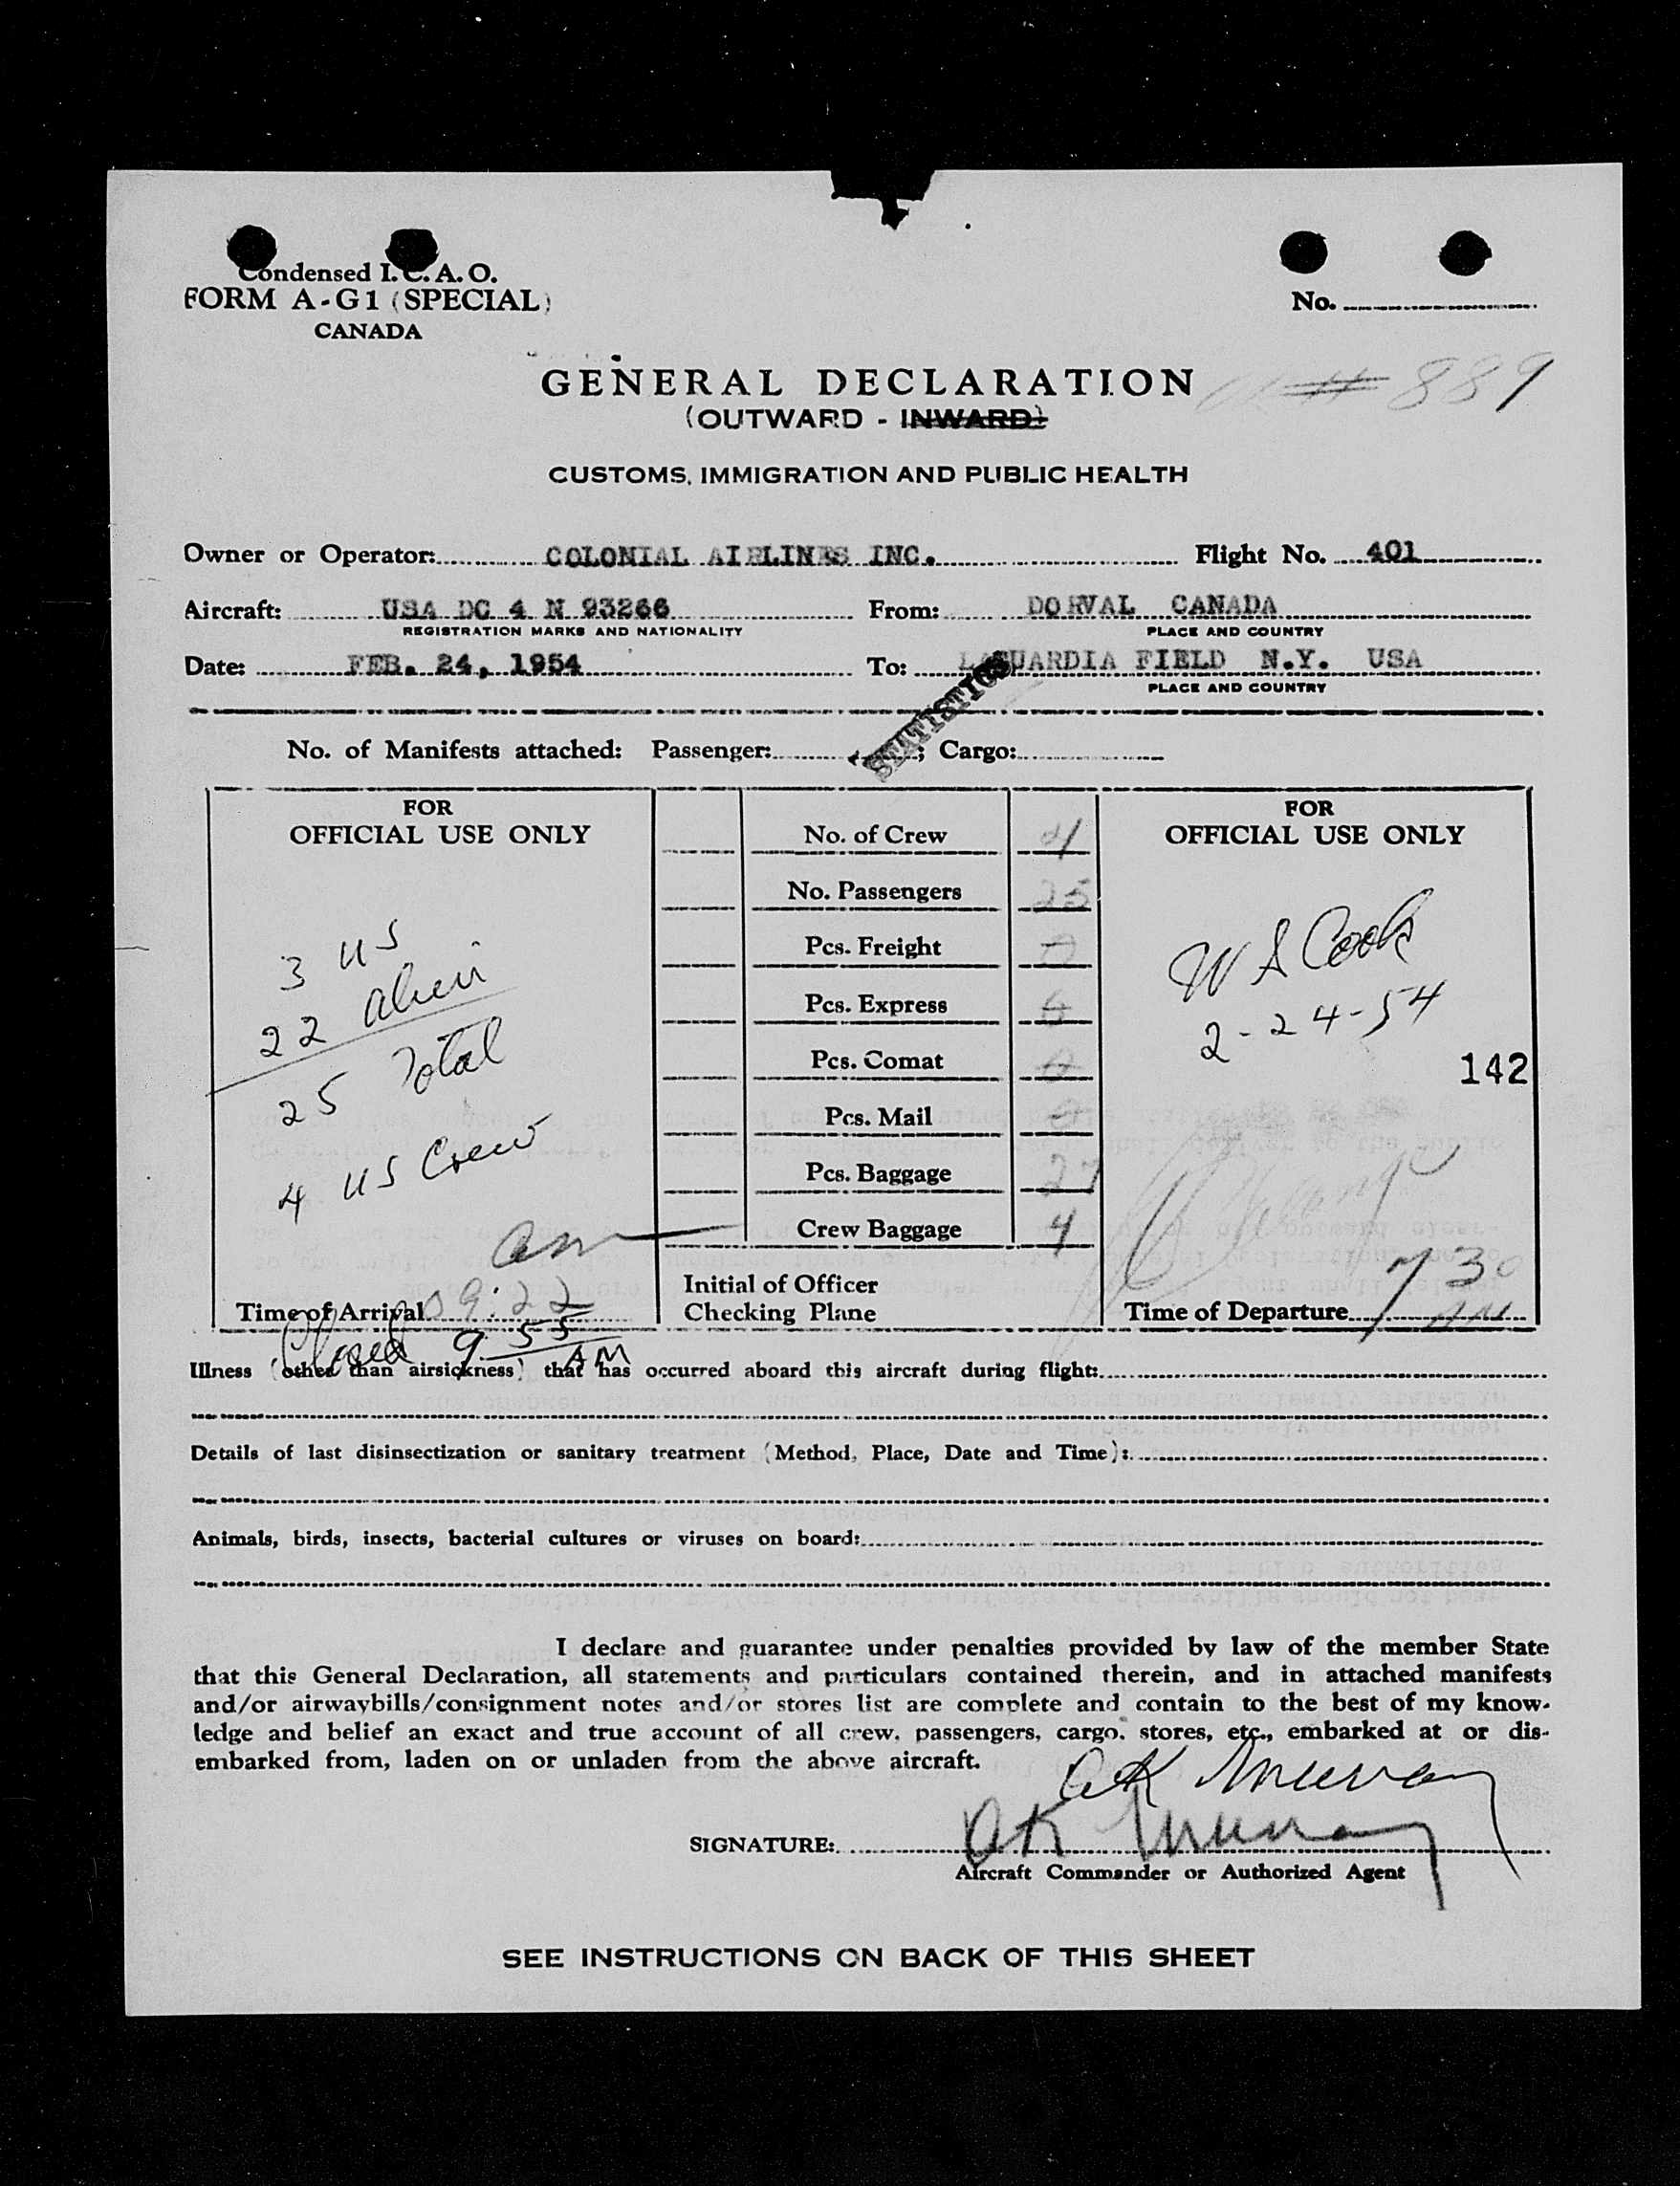 Condensed I.C.A.O.
FORM A-G1 (SPECIAL)
CANADA
No.
GENERAL DECLARATION
889
(OUTWARD - INWARD)
CUSTOMS, IMMIGRATION AND PUBLIC HEALTH
Owner or Operator: COLONIAL AIRLINES INC. Flight No. 401
Aircraft: USA DC 4 N 93266 From: DORVAL CANADA
REGISTRATION MARKS AND NATIONALITY PLACE AND COUNTRY
Date: FEB. 24, 1954 To: LAGUARDIA FIELD N.Y. USA
PLACE AND COUNTRY
STATISTICS
No. of Manifests attached: Passenger: ; Cargo:
FOR
OFFICIAL USE ONLY
3 US
22 alien
25 Total
4 US Crew
am
Time of Arrival 09:22
Closed 9 55 AM
No. of Crew 4
No. Passengers 25
Pcs. Freight 0
Pcs. Express
Pcs. Comat 0
Pcs. Mail 0
Pcs. Baggage 27
Crew Baggage 4
Initial of Officer
Checking Plane
FOR
OFFICIAL USE ONLY
W S Cook
2-24-54
142
Time of Departure 7 30 AM
Illness (other than airsickness) that has occurred aboard this aircraft during flight:
Details of last disinsectization or sanitary treatment (Method, Place, Date and Time):
Animals, birds, insects, bacterial cultures or viruses on board:
I declare and guarantee under penalties provided by law of the member State
that this General Declaration, all statements and particulars contained therein, and in attached manifests
and/or airwaybills/consignment notes and/or stores list are complete and contain to the best of my know-
ledge and belief an exact and true account of all crew, passengers, cargo, stores, etc., embarked at or dis-
embarked from, laden on or unladen from the above aircraft.
AK Murray
SIGNATURE: AK Murray
Aircraft Commander or Authorized Agent
SEE INSTRUCTIONS ON BACK OF THIS SHEET